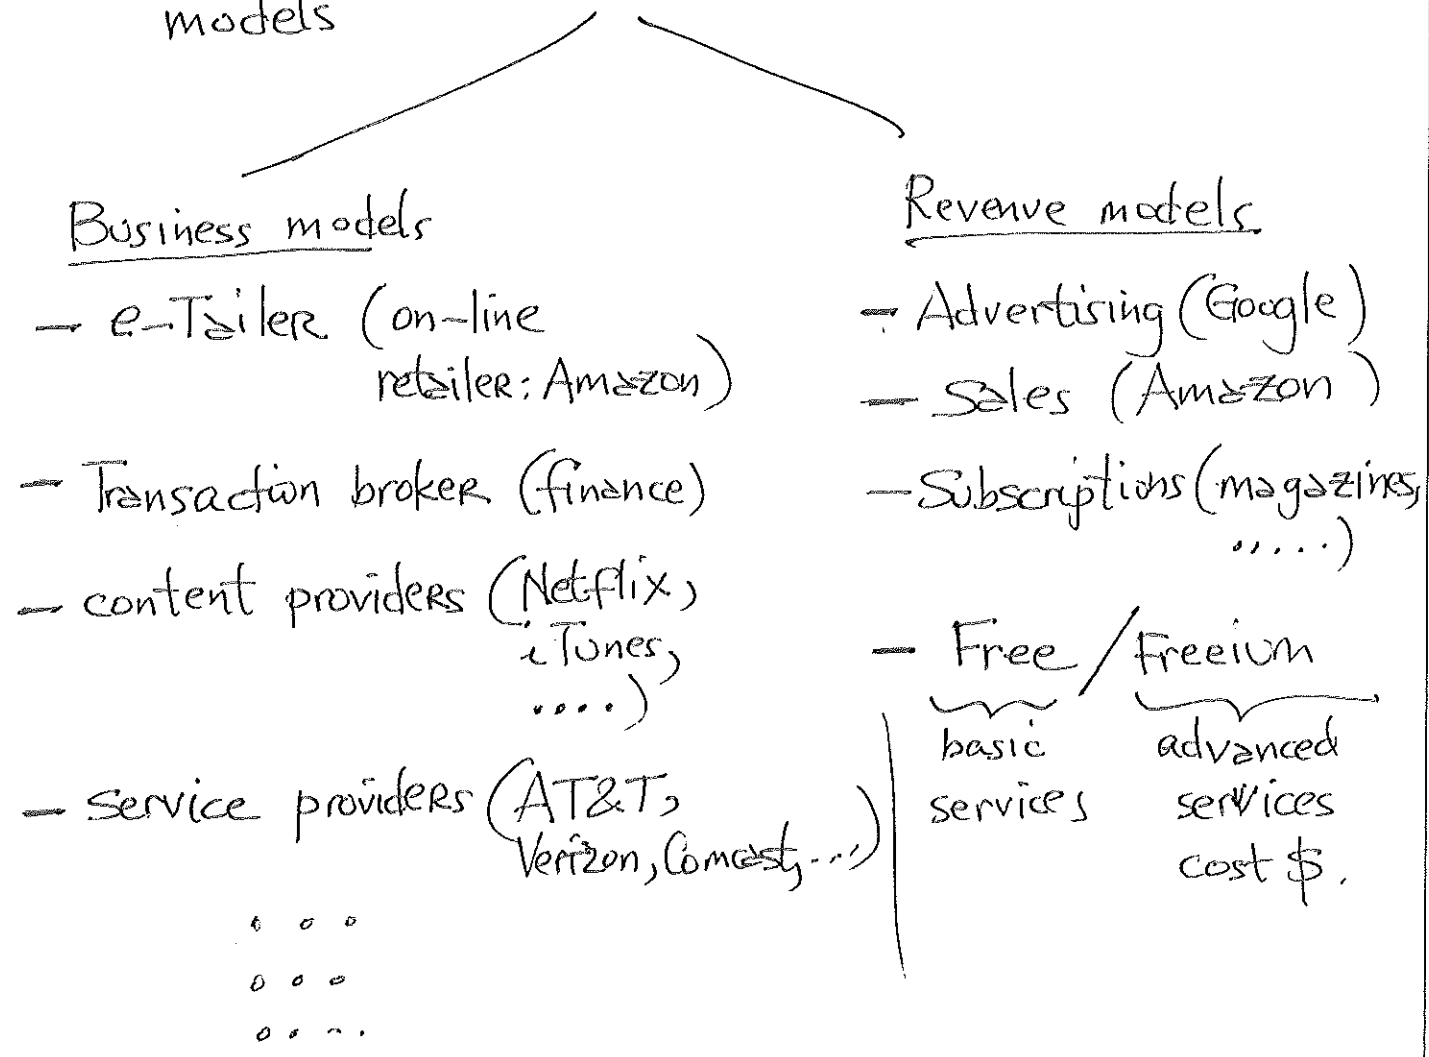 models
Business models
- e-Tailer (on-line
retailer: Amazon)
- Transaction broker (finance)
- content providers (Netflix,
iTunes,
....)
- Service providers (AT&T,
Verizon, Comcast, ...)
. . .
. . .
. . . .
Revenue models
- Advertising (Google)
- Sales (Amazon)
- Subscriptions (magazines,
.....)
- Free / Freeium
basic
services
advanced
services
cost $.